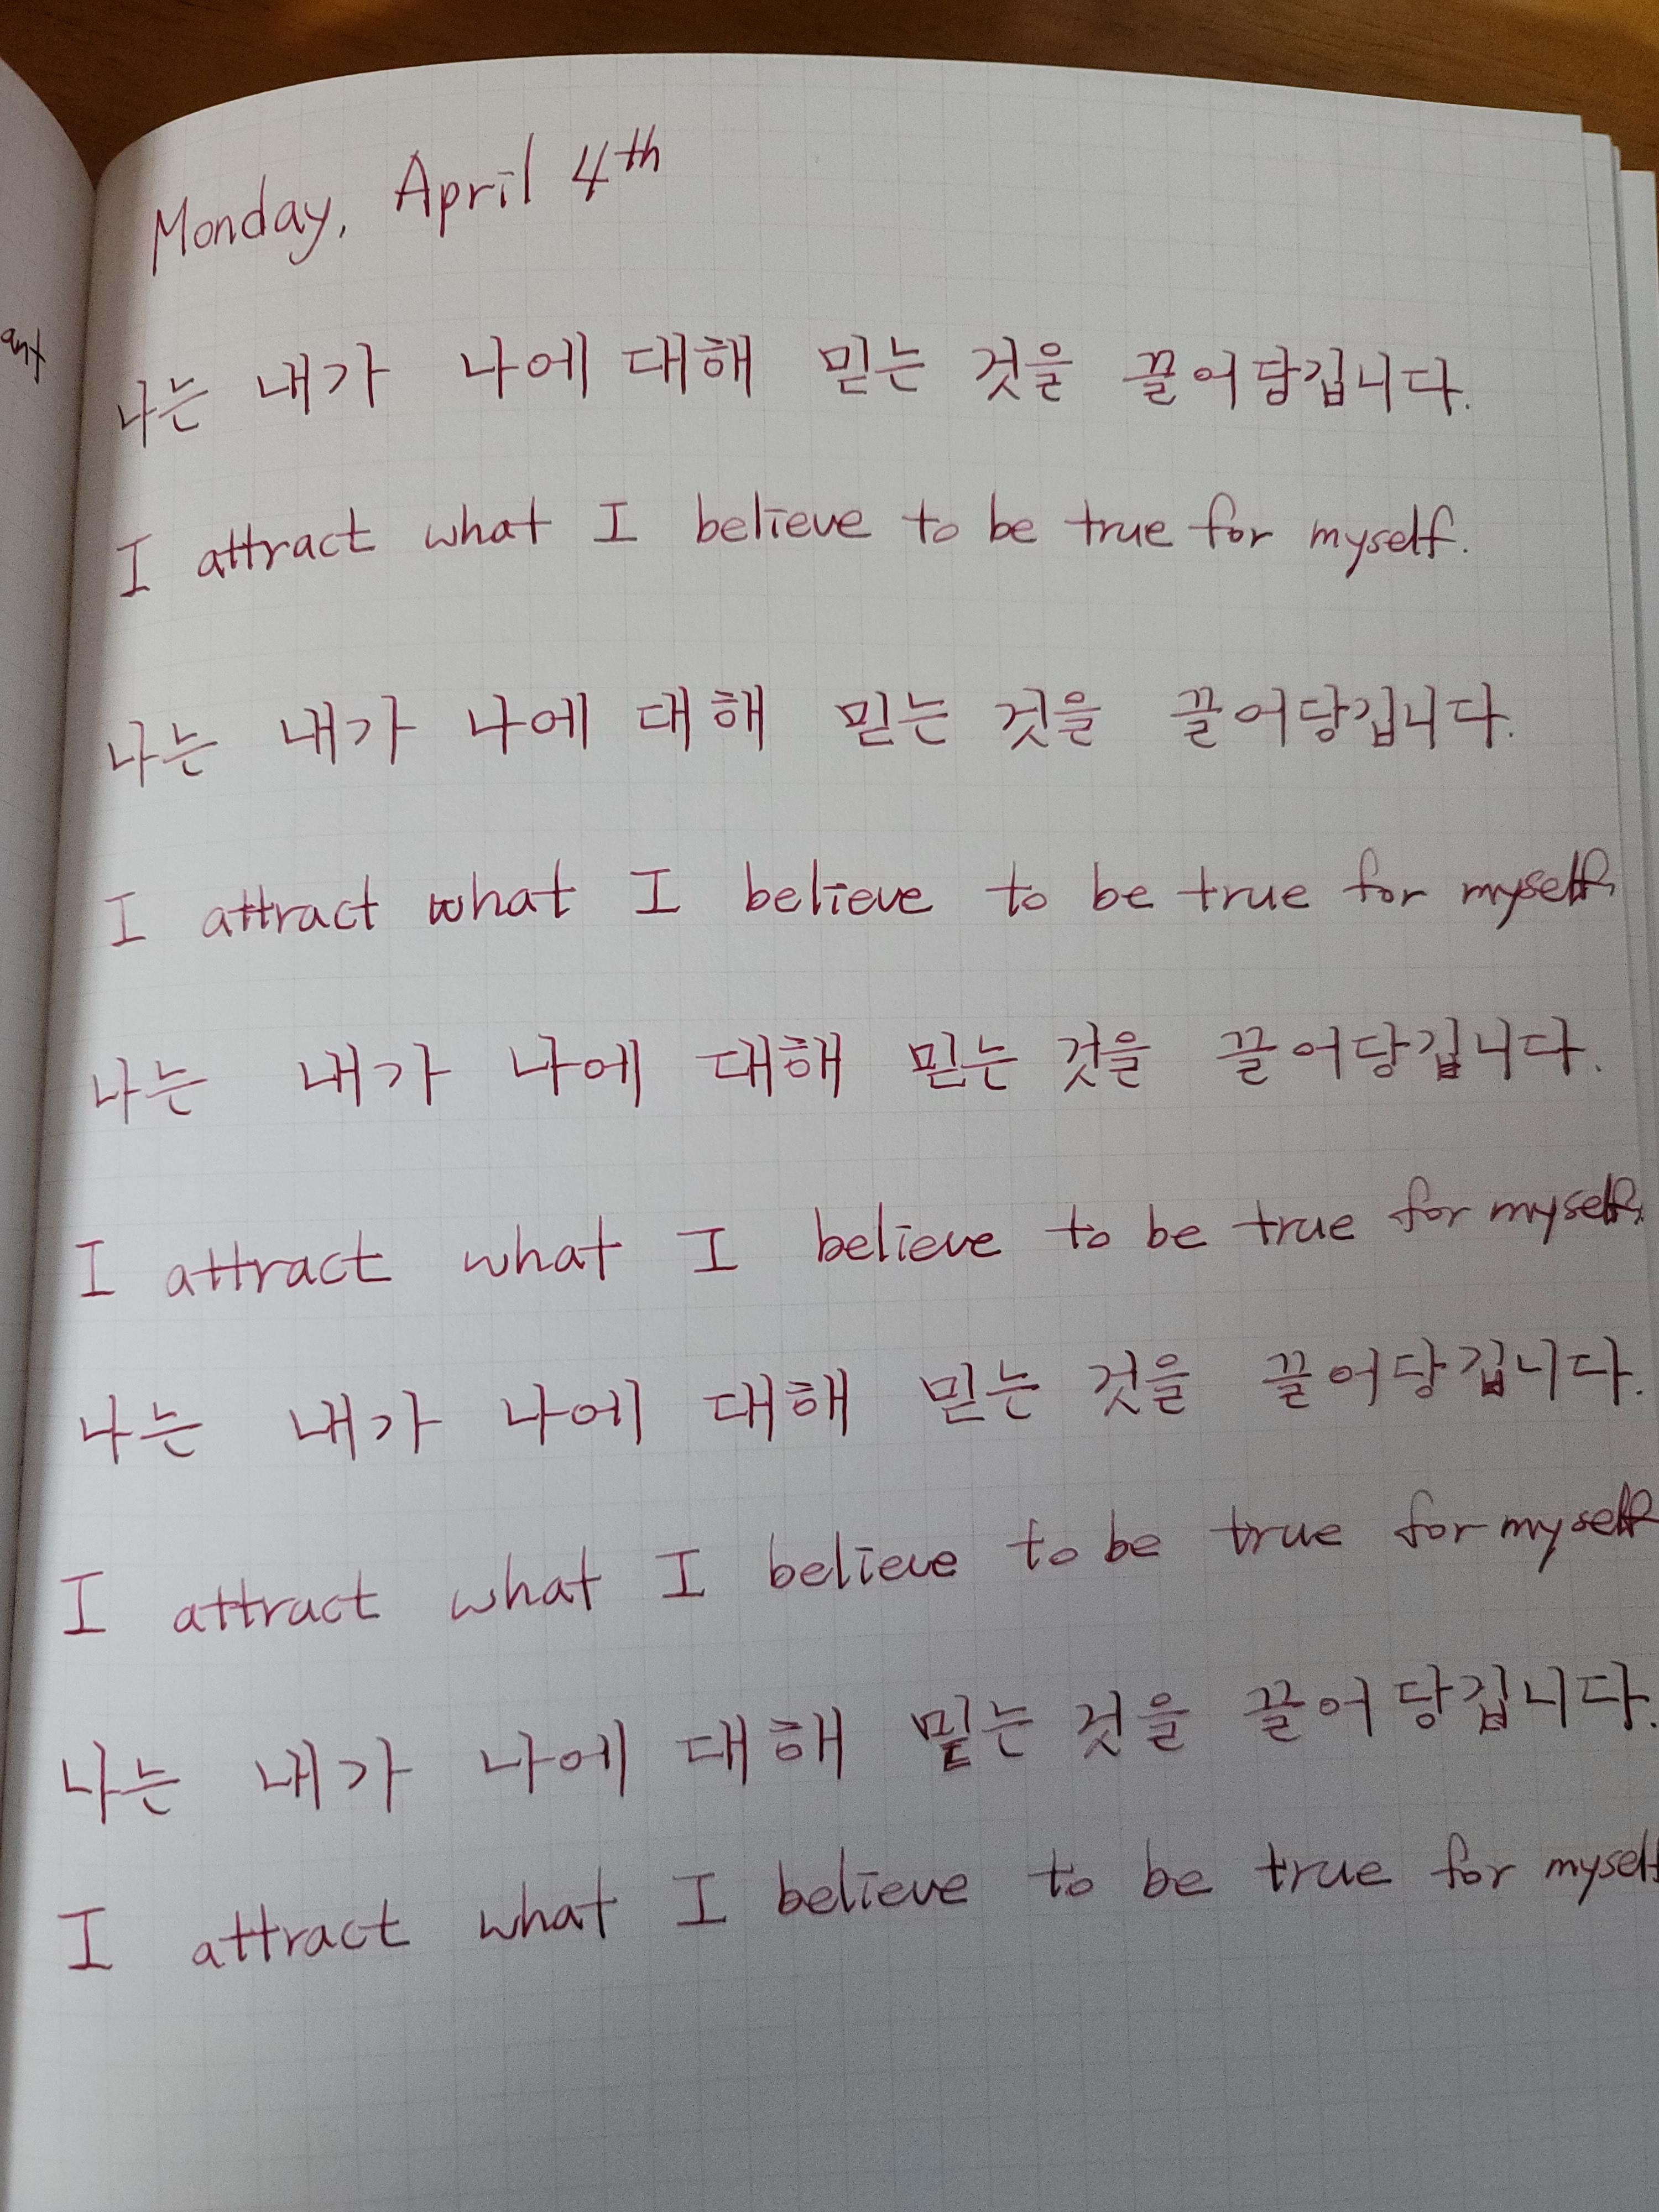 Monday, April 4th
ant
나는 내가 나에 대해 믿는 것을 끌어당깁니다.
I attract what I believe to be true for myself.
나는 내가 나에 대해 믿는 것을 끌어당깁니다.
I attract what I believe to be true for myself.
나는 내가 나에 대해 믿는 것을 끌어당깁니다.
I attract what I believe to be true for myself.
나는 내가 나에 대해 믿는 것을 끌어당깁니다.
I attract what I believe to be true for myself
나는 내가 나에 대해 믿는 것을 끌어당깁니다.
I attract what I believe to be true for myself